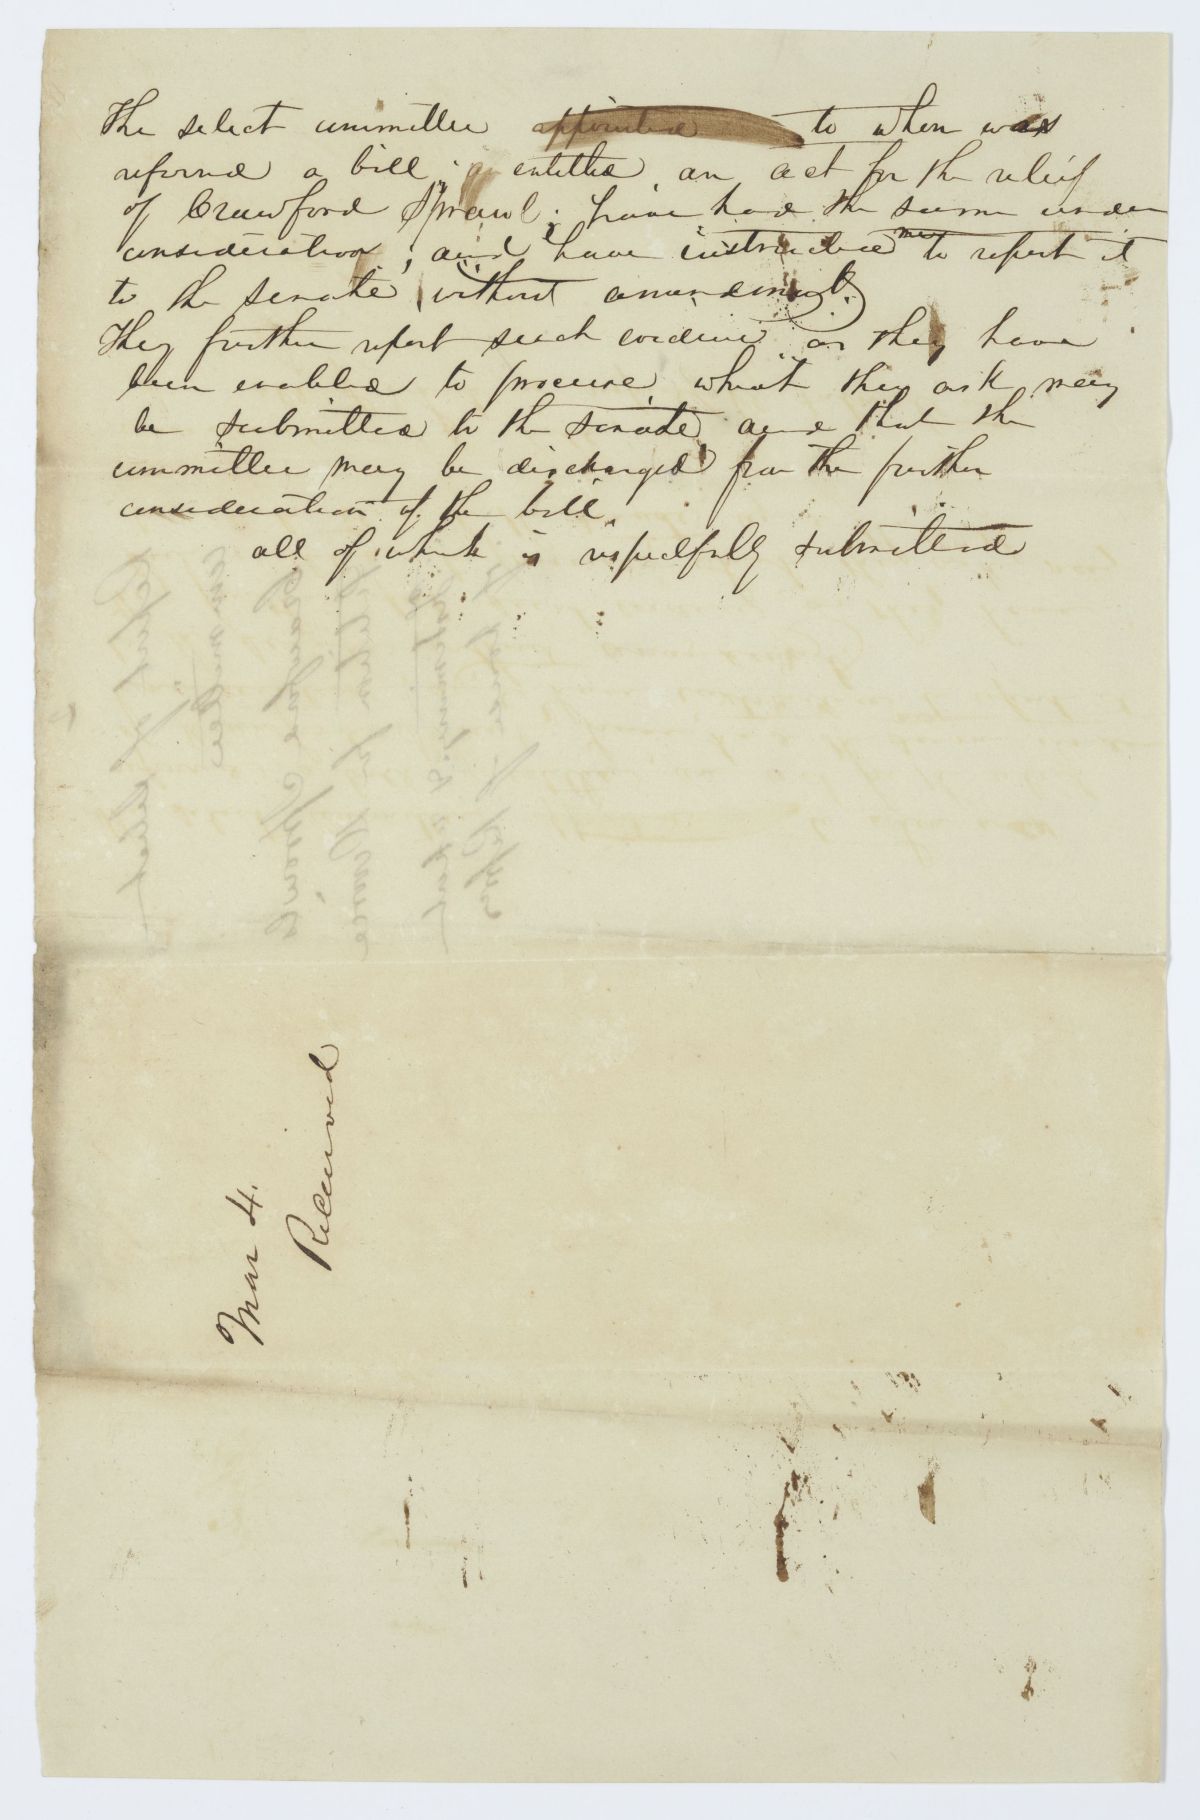 The select committee appointed to whom was
referred a bill entitled an act for the relief
of Crawford Sprowl; have had the same under
consideration, and have instructed me to report it
to the senate without amendment.
They further report such evidence as they have
been enabled to procure which they ask may
be submitted to the senate and that the
committee may be discharged from the further
consideration of the bill
all of which is respectfully submitted
Mar 4.
Received